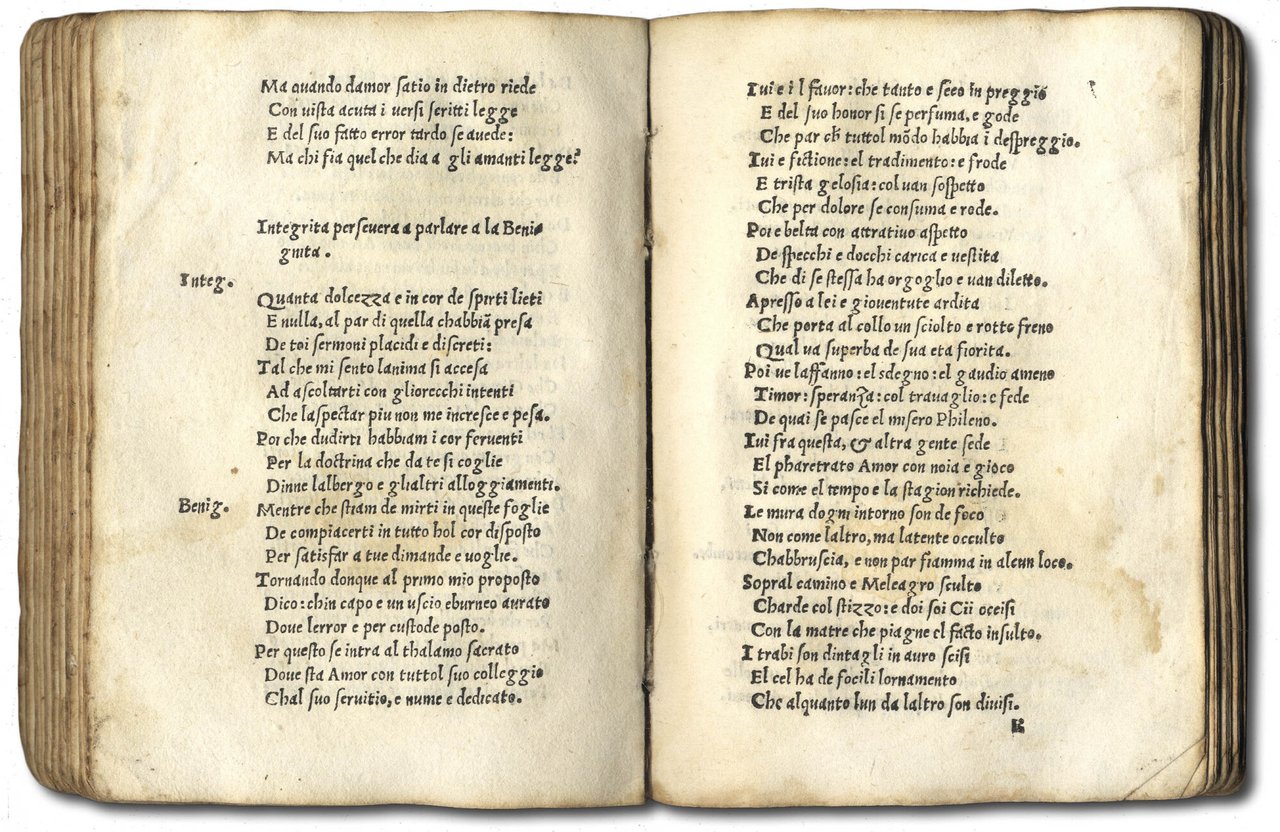 Ma quando damor satio in dietro riede
Con uista acuta i uersi scritti legge
E del suo fatto error tardo se auede:
Ma chi fia quel che dia a gli amanti legge?
Integrita perseuera a parlare a la Beni
gnita.
Integ.
Quanta dolcezza e in cor de spirti lieti
E nulla, al par di quella chabbiā presa
De toi sermoni placidi e discreti:
Tal che mi sento lanima si accesa
Ad ascoltarti con gliorecchi intenti
Che laspectar piu non me incresce e pesa.
Poi che dudirti habbiam i cor feruenti
Per la doctrina che da te si coglie
Dinne lalbergo e glialtri alloggiamenti.
Benig. Mentre che stiam de mirti in queste foglie
De compiacerti in tutto hol cor disposto
Per satisfar a tue dimande e uoglie.
Tornando donque al primo mio proposto
Dico: chin capo e un uscio eburneo aurato
Doue lerror e per custode posto.
Per questo se intra al thalamo sacrato
Doue sta Amor con tuttol suo colleggio
Chal suo seruitio, e nume e dedicato.
Iui e il fauor: che tanto e seco in preggio
E del suo honor si se perfuma, e gode
Che par ch̄ tuttol mōdo habbia i despreggio.
Iui e fictione: el tradimento: e frode
E trista gelosia: col uan sospetto
Che per dolore se consuma e rode.
Poi e belta con attratiuo aspetto
De specchi e docchi carica e uestita
Che di se stessa ha orgoglio e uan diletto.
Apresso a lei e giouentute ardita
Che porta al collo un sciolto e rotto freno
Qual ua superba de sua eta fiorita.
Poi ue laffanno: el sdegno: el gaudio ameno
Timor: speranza: col trauaglio: e fede
De quai se pasce el misero Phileno.
Iui fra questa, & altra gente sede
El pharetrato Amor con noia e gioco
Si come el tempo e la stagion richiede.
Le mura dogni intorno son de foco
Non come laltro, ma latente occulto
Chabbruscia, e non par fiamma in alcun loco.
Sopral camino e Meleagro sculto
Charde col stizzo: e doi soi Cii occisi
Con la matre che piagne el facto insulto.
I trabi son dintagli in auro scisi
El cel ha de focili lornamento
Che alquanto lun da laltro son diuisi.
K